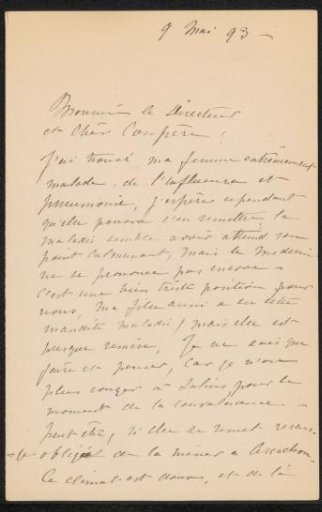 9 Mai 93 -
Monsieur le Directeur
et Cher Confrère !
J'ai trouvé ma femme extrêmement
malade, de l'influenza et
pneumonie, j'espère cependant
qu'elle pourra s'en remettre la
maladie semble avoir atteint son
point culminant, mais le médecin
ne se prononce pas encore -
C'est une bien triste position pour
nous, ma fille aussi a eu cette
maudite maladie, mais elle est
presque remise. Je ne sais que
faire et penser, car je n'ose
plus songer à Salins pour le
moment de la convalescence -
peut être, si elle se remet
obligé de la mener à Arcachon
Ce climat est doux, et de là